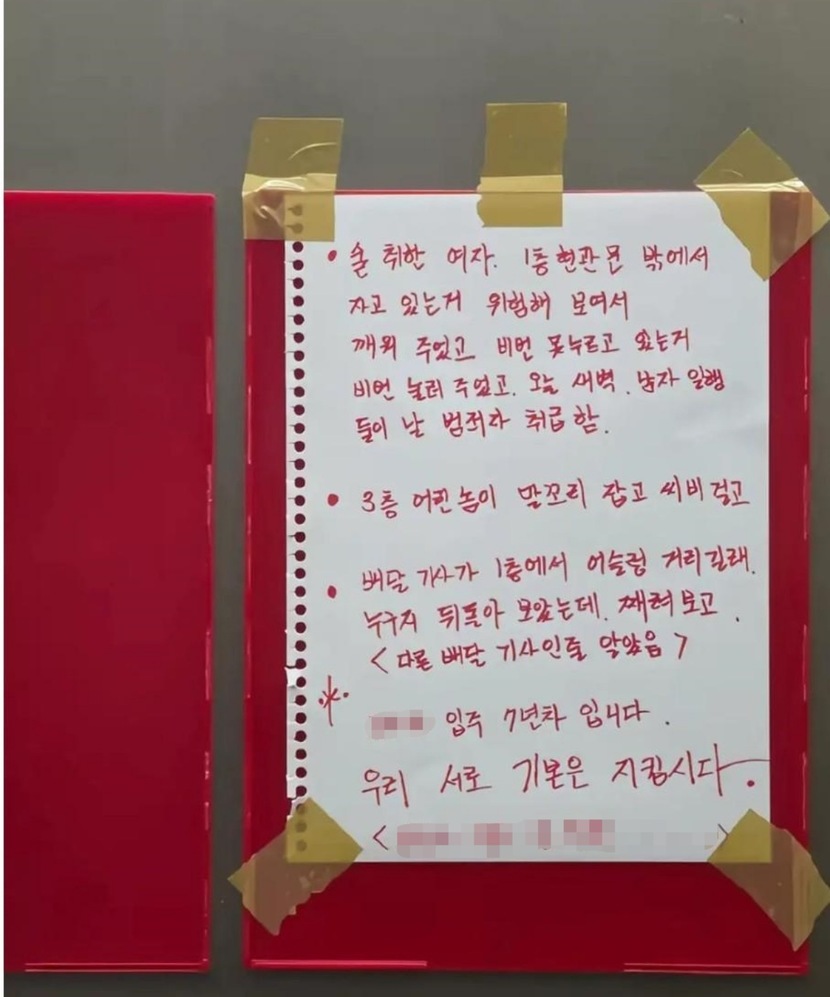 • 술 취한 여자. 1층 현관문 밖에서
자고 있는거 위험해 보여서
깨워 주었고 비번 못누르고 있는거
비번 눌러 주었고. 오늘 새벽. 남자 일행
들이 날 범죄자 취급함.
• 3층 어린놈이 말꼬리 잡고 씨비걸고
• 배달 기사가 1층에서 어슬렁 거리길래.
누구지 뒤돌아 보았는데. 째려보고.
<다른 배달 기사인줄 알았음>
※ 입주 7년차 입니다.
우리 서로 기본은 지킵시다.